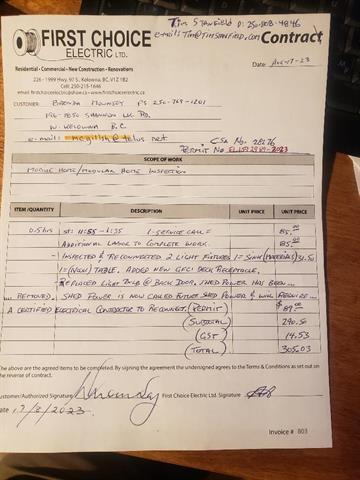 Tim Stanfield P: 250-808-4846
e-mail: Tim@Timstanfield.com
FIRST CHOICE
ELECTRIC LTD.
Contract
Residential • Commercial • New Construction • Renovations
Date:
226 - 1999 Hwy. 97 S., Kelowna, BC, V1Z 1B2
Cell: 250-215-1646
email: firstchoiceelectric@shaw.ca • www.firstchoiceelectric.ca
CUSTOMER: Brenda Mounsey P: 250-769-1201
W. Kelowna B.C.
e-mail: mcgilish@telus.net
CSA No. 28276
Permit No EL-
SCOPE OF WORK
Mobile Home/Modular Home Inspection
ITEM /QUANTITY DESCRIPTION UNIT PRICE UNIT PRICE
0.5 hrs 1-Service Call = 85.00
Additional Labour to Complete Work. 85.00
- Inspected & Reconnected 2 Light Fixtures 1= Sink (Materials) 31.50
1=(Nook) Table. Added New GFCI Deck Receptacle.
- Replaced Light Bulb @ Back Door. Shed Power Has Been...
... Restored. Shed Power is now called Future Shed Power & Will Require...
A Certified Electrical Contractor to Reconnect. (Permit) $89.00
(Subtotal) 290.50
(GST) 14.53
(Total) 305.03
The above are the agreed items to be completed. By signing the agreement the undersigned agrees to the Terms & Conditions as set out on
the reverse of contract.
Customer/Authorized Signature First Choice Electric Ltd. Signature
Date 17/8/2023
Invoice # 803